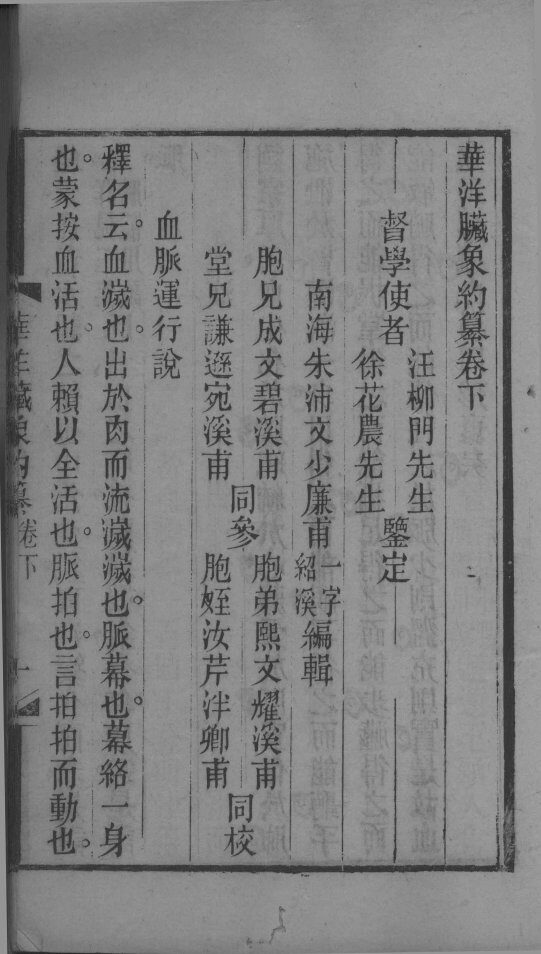 華洋臟象約纂卷下
督學使者
汪柳門先生
徐花農先生
鑒定
南海朱沛文少廉甫
一字
紹溪
編輯
胞兄成文碧溪甫
堂兄謙遜宛溪甫
同參
胞弟熙文耀溪甫
胞姪汝芹泮卿甫
同校
血脈運行說
釋名云。血濊也。出於肉而流濊濊也。脈幕也。幕絡一身
也。蒙按血活也。人賴以全活也。脈拍也。言拍拍而動也。
華洋臟象約纂卷下
一